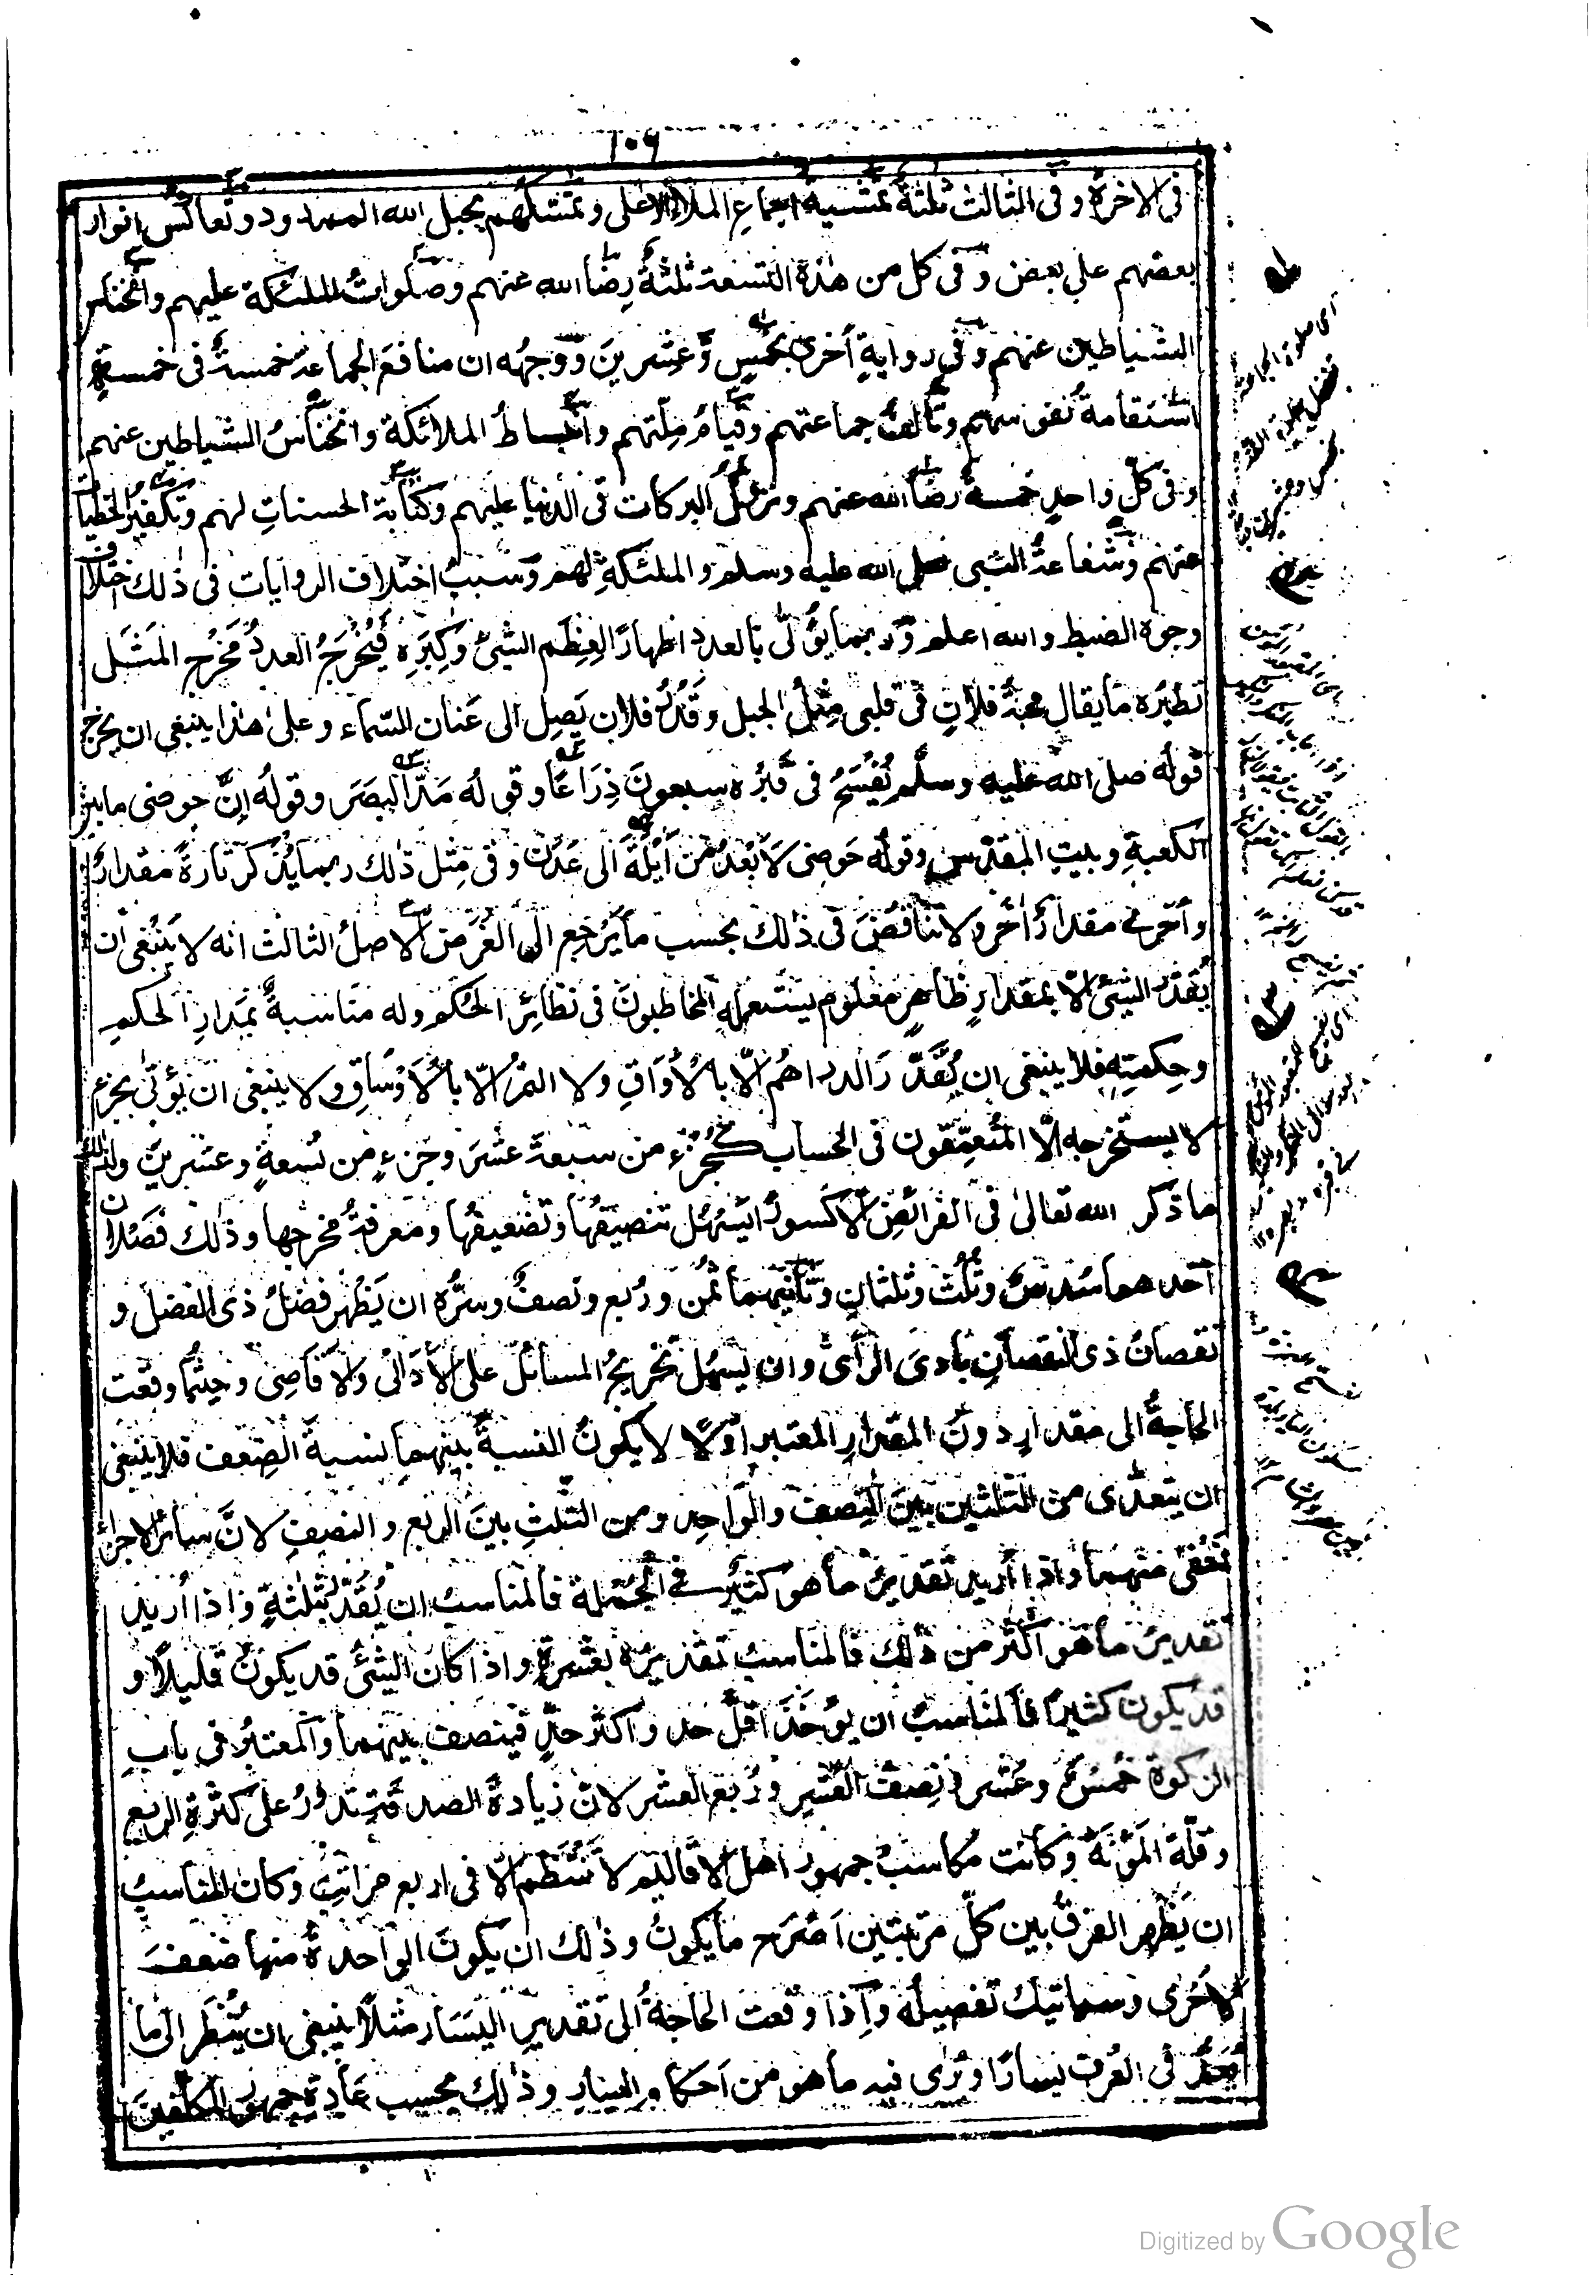 ١٠٦
فى الاخرة وفى الثالث ثلثة تمشية اجماع الملأ الاعلى وتمسكهم بحبل الله الممدود وتعاكس انوار
بعضهم على بعض وفى كل من هذه التسعة ثلثة رضا الله عنهم وصلوات الملئكة عليهم وانخناس
الشياطين عنهم وفى رواية أخرى بخمس وعشرين ووجهه ان منافع الجماعة خمسة فى خمسة
استقامة نفوسهم وتألف جماعتهم وقيام ملتهم وانبساط الملائكة وانخناس الشياطين عنهم
وفى كل واحد خمسة رضا الله عنهم ونزول البركات فى الدنيا عليهم وكتابة الحسنات لهم وتكفير الخطيات
عنهم وشفاعة النبى صلى الله عليه وسلم والملئكة لهم وسبب اختلاف الروايات فى ذلك اختلاف
وجوه الضبط والله اعلم وربما يؤتى بالعدد اظهارا لعظم الشئ وكبره فيخرج العدد مخرج المثل
نظيره ما يقال محبة فلان فى قلبى مثل الجبل وقدر فلان يصل الى عنان السماء وعلى هذا ينبغى ان يخرج
قوله صلى الله عليه وسلم يفسح فى قبره سبعون ذراعا وقوله مد البصر وقوله ان حوضى ما بين
الكعبة وبيت المقدس وقوله حوضى لأبعد من أيلة الى عدن وفى مثل ذلك ربما يذكر تارة مقدار
وأخرى مقدار أخر ولا تناقض فى ذلك بحسب ما يرجع الى الغرض الاصل الثالث انه لا ينبغى ان
يقدر الشئ الا بمقدار ظاهر معلوم يستعمله المخاطبون فى نظائر الحكم وله مناسبة بمدار الحكم
وحكمته فلا ينبغى ان يقدر الدراهم الا بالأواق ولا التمر الا بالأوساق ولا ينبغى ان يؤتى بجزء
لا يستخرجه الا المتعمقون فى الحساب كجزء من سبعة عشر وجزء من تسعة وعشرين ولذلك
ما ذكر الله تعالى فى الفرائض الا كسورا يسهل تنصيفها وتضعيفها ومعرفة مخرجها وذلك فصلان
أحدهما سدس وثلث وثلثان وثانيهما ثمن وربع ونصف وسره ان يظهر فضل ذى الفضل و
نقصان ذى النقصان بادى الرأى وان يسهل تخريج المسائل على الأدانى والأقاصى وحيثما وقعت
الحاجة الى مقدار دون المقدار المعتبر اولا لا يكون النسبة بينهما نسبة الضعف فلا ينبغى
ان يتعدى من الثلثين بين النصف والواحد ومن الثلث بين الربع والنصف لان سائر الاجزاء
تخفى منهما واذا أريد تقدير ما هو كثير فى الجملة فالمناسب ان يقدر بثلثة واذا أريد
تقدير ما هو اكثر من ذلك فالمناسب تقديره بعشرة واذا كان الشئ قد يكون قليلا و
قد يكون كثيرا فالمناسب ان يؤخذ اقل حد واكثر حد فينصف بينهما والمعتبر فى باب
الزكوة خمس وعشر ونصف العشر وربع العشر لان زيادة الصدقة تدور على كثرة الريع
وقلة المؤنة وكانت مكاسب جمهور اهل الاقاليم لا تنتظم الا فى اربع مراتب وكان المناسب
ان يظهر الفرق بين كل مرتبتين اصرح ما يكون وذلك ان يكون الواحدة منها ضعف
الأخرى وسياتيك تفصيله واذا وقعت الحاجة الى تقدير اليسار مثلا ينبغى ان ينظر الى ما
يعد فى العرف يسارا ويرى فيه ما هو من احكام اليسار وذلك بحسب عادة جمهور المكلفين
Digitized by Google